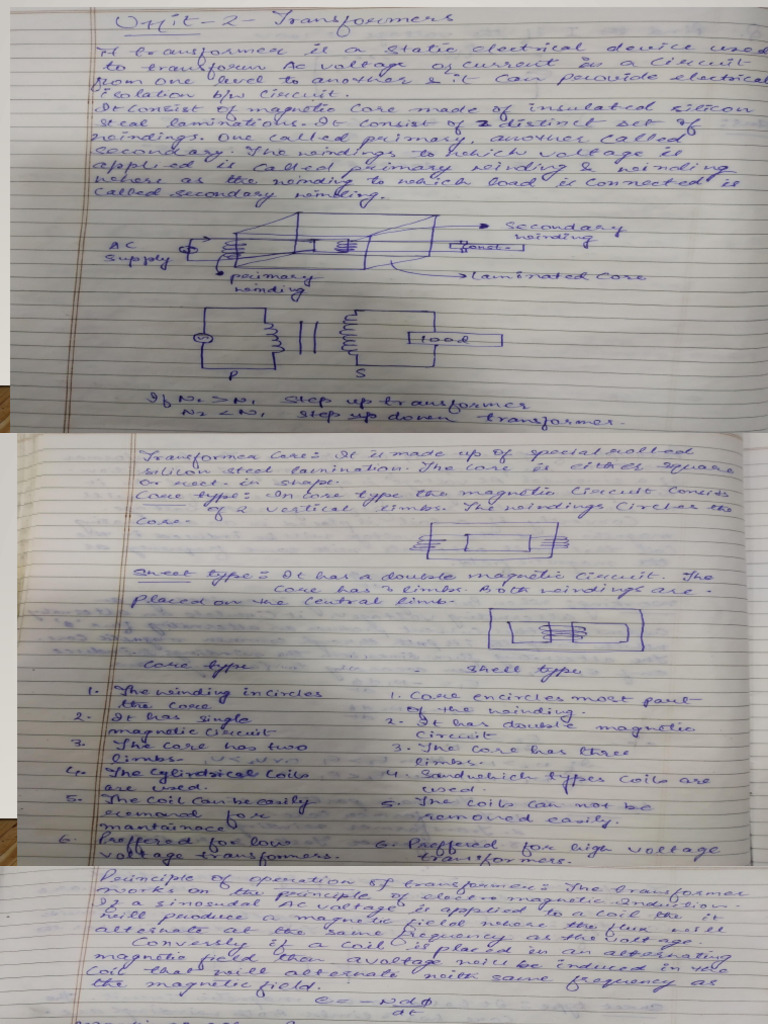 Unit-2- Transformers
A transformer is a static electrical device used
to transform AC voltage or current in a circuit
from one level to another & it can provide electrical
isolation b/w circuit.
It consist of magnetic core made of insulated silicon
steal laminations. It consist of 2 distinct set of
windings. One called primary, another called
secondary. The windings to which voltage is
applied is called primary winding & winding
where as the winding to which load is connected is
called secondary winding.
Secondary
winding
AC
Supply
laminated core
primary
winding
load
P S
If N2 > N1 Step up transformer
N2 < N1 Step up down transformer.
Transformer Core:- It is made up of special rolled
silicon steel lamination. The core is either square
or rect. in shape.
Core type:- In core type the magnetic circuit consists
of 2 vertical limbs. The windings circles the
core.
type:- It has a double magnetic circuit. The
core has 3 limbs. Both windings are
placed on the central limb.
Core type Shell type
1. The winding incircles 1. Core encircles most part
the core of the winding.
2. It has single 2. It has double magnetic
magnetic circuit circuit
3. The core has two 3. The core has three
limbs. limbs.
4. The cylindrical coils 4. Sandwhich types coils are
are used. used.
5. The coil can be easily 5. The coils can not be
for removed easily.
6. Preffered for low 6. Preffered for high voltage
voltage transformers. transformers.
Principle of operation of transformer:- The transformer
works on the principle of electro magnetic Induction.
If a sinosudal AC voltage is applied to a coil the it
will produce a magnetic field where the flux will
alternate at the same frequency as the voltage.
Conversly if a coil is placed in an alternating
magnetic field then a voltage will be induced in
coil that will alternate with same frequency as
the magnetic field.
e = -Ndϕ
dt